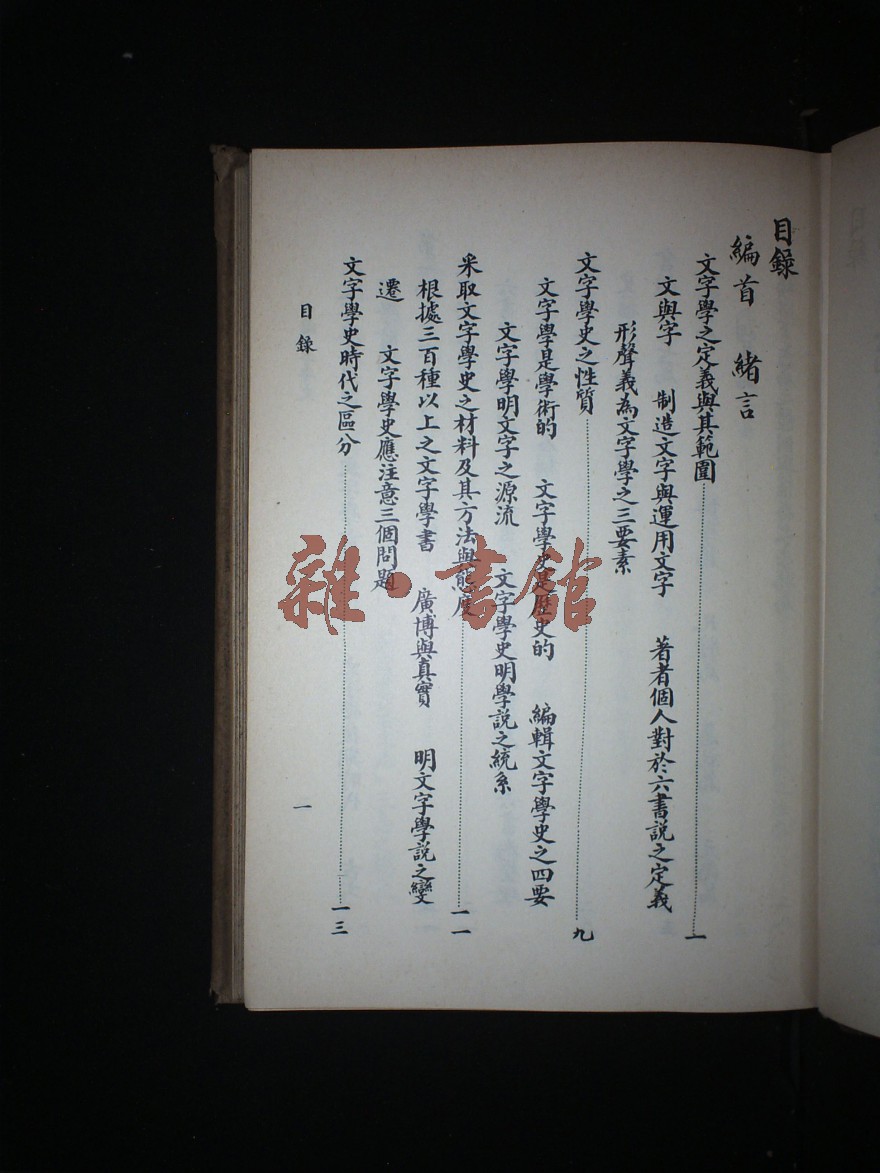 目錄
編首 緒言
文字學之定義與其範圍……一
文與字 制造文字與運用文字 著者個人對於六書說之定義
形聲義為文字學之三要素
文字學史之性質……九
文字學是學術的 文字學史是歷史的 編輯文字學史之四要
文字學明文字之源流 文字學史明學説之統系
采取文字學史之材料及其方法與態度……一一
根據三百種以上之文字學書 廣博與真實 明文字學說之變
遷 文字學史應注意三個問題
文字學史時代之區分……一三
目錄
一
雜·書館